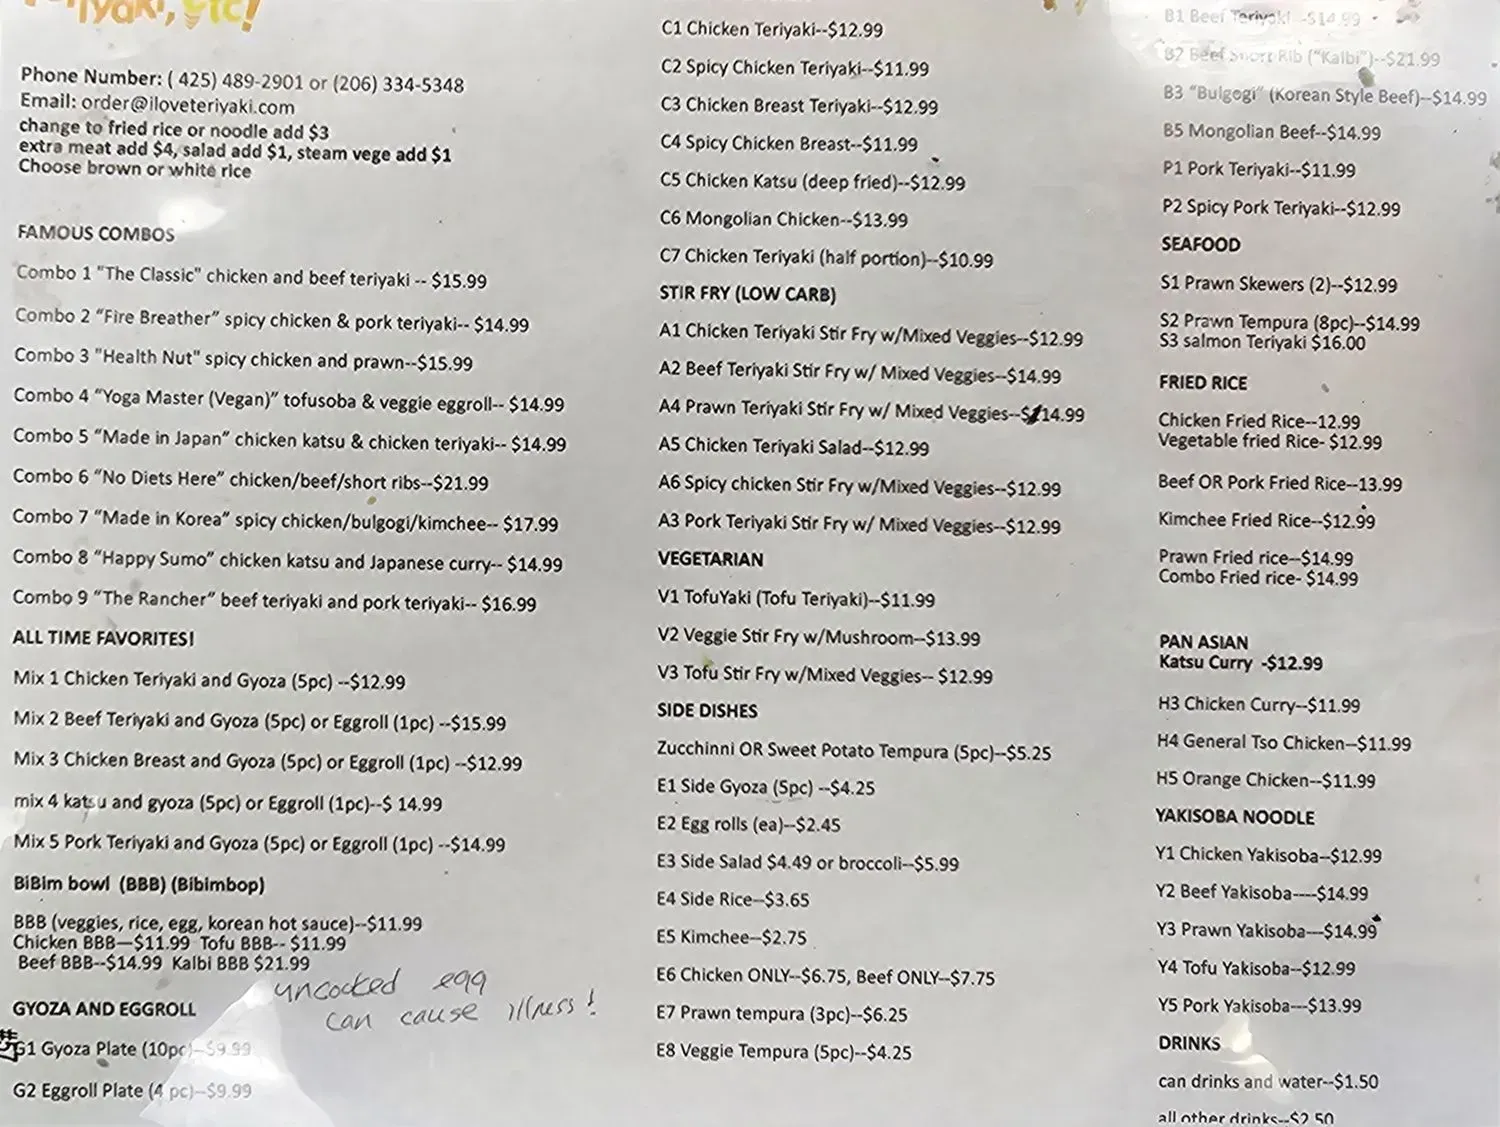 etc!
Phone Number: ( 425) 489-2901 or (206) 334-5348
Email: order@iloveteriyaki.com
change to fried rice or noodle add $3
extra meat add $4, salad add $1, steam vege add $1
Choose brown or white rice
FAMOUS COMBOS
Combo 1 "The Classic" chicken and beef teriyaki -- $15.99
Combo 2 “Fire Breather” spicy chicken & pork teriyaki-- $14.99
Combo 3 "Health Nut" spicy chicken and prawn--$15.99
Combo 4 “Yoga Master (Vegan)” tofusoba & veggie eggroll-- $14.99
Combo 5 “Made in Japan” chicken katsu & chicken teriyaki-- $14.99
Combo 6 “No Diets Here” chicken/beef/short ribs--$21.99
Combo 7 “Made in Korea” spicy chicken/bulgogi/kimchee-- $17.99
Combo 8 “Happy Sumo” chicken katsu and Japanese curry-- $14.99
Combo 9 “The Rancher” beef teriyaki and pork teriyaki-- $16.99
ALL TIME FAVORITES!
Mix 1 Chicken Teriyaki and Gyoza (5pc) --$12.99
Mix 2 Beef Teriyaki and Gyoza (5pc) or Eggroll (1pc) --$15.99
Mix 3 Chicken Breast and Gyoza (5pc) or Eggroll (1pc) --$12.99
mix 4 katsu and gyoza (5pc) or Eggroll (1pc)--$ 14.99
Mix 5 Pork Teriyaki and Gyoza (5pc) or Eggroll (1pc) --$14.99
BiBim bowl (BBB) (Bibimbop)
BBB (veggies, rice, egg, korean hot sauce)--$11.99
Chicken BBB—$11.99 Tofu BBB-- $11.99
Beef BBB--$14.99 Kalbi BBB $21.99
uncooked egg
can cause illness!
GYOZA AND EGGROLL
G1 Gyoza Plate (10pc)--$9.99
G2 Eggroll Plate (4 pc)--$9.99
C1 Chicken Teriyaki--$12.99
C2 Spicy Chicken Teriyaki--$11.99
C3 Chicken Breast Teriyaki--$12.99
C4 Spicy Chicken Breast--$11.99
C5 Chicken Katsu (deep fried)--$12.99
C6 Mongolian Chicken--$13.99
C7 Chicken Teriyaki (half portion)--$10.99
STIR FRY (LOW CARB)
A1 Chicken Teriyaki Stir Fry w/Mixed Veggies--$12.99
A2 Beef Teriyaki Stir Fry w/ Mixed Veggies--$14.99
A4 Prawn Teriyaki Stir Fry w/ Mixed Veggies--$14.99
A5 Chicken Teriyaki Salad--$12.99
A6 Spicy chicken Stir Fry w/Mixed Veggies--$12.99
A3 Pork Teriyaki Stir Fry w/ Mixed Veggies--$12.99
VEGETARIAN
V1 TofuYaki (Tofu Teriyaki)--$11.99
V2 Veggie Stir Fry w/Mushroom--$13.99
V3 Tofu Stir Fry w/Mixed Veggies-- $12.99
SIDE DISHES
Zucchinni OR Sweet Potato Tempura (5pc)--$5.25
E1 Side Gyoza (5pc) --$4.25
E2 Egg rolls (ea)--$2.45
E3 Side Salad $4.49 or broccoli--$5.99
E4 Side Rice--$3.65
E5 Kimchee--$2.75
E6 Chicken ONLY--$6.75, Beef ONLY--$7.75
E7 Prawn tempura (3pc)--$6.25
E8 Veggie Tempura (5pc)--$4.25
B1 Beef Teriyaki --$14.99
B2 Beef Short Rib (“Kalbi”)--$21.99
B3 “Bulgogi” (Korean Style Beef)--$14.99
B5 Mongolian Beef--$14.99
P1 Pork Teriyaki--$11.99
P2 Spicy Pork Teriyaki--$12.99
SEAFOOD
S1 Prawn Skewers (2)--$12.99
S2 Prawn Tempura (8pc)--$14.99
S3 salmon Teriyaki $16.00
FRIED RICE
Chicken Fried Rice--12.99
Vegetable fried Rice- $12.99
Beef OR Pork Fried Rice--13.99
Kimchee Fried Rice--$12.99
Prawn Fried rice--$14.99
Combo Fried rice- $14.99
PAN ASIAN
Katsu Curry -$12.99
H3 Chicken Curry--$11.99
H4 General Tso Chicken--$11.99
H5 Orange Chicken--$11.99
YAKISOBA NOODLE
Y1 Chicken Yakisoba--$12.99
Y2 Beef Yakisoba----$14.99
Y3 Prawn Yakisoba---$14.99
Y4 Tofu Yakisoba--$12.99
Y5 Pork Yakisoba---$13.99
DRINKS
can drinks and water--$1.50
all other drinks--$2.50